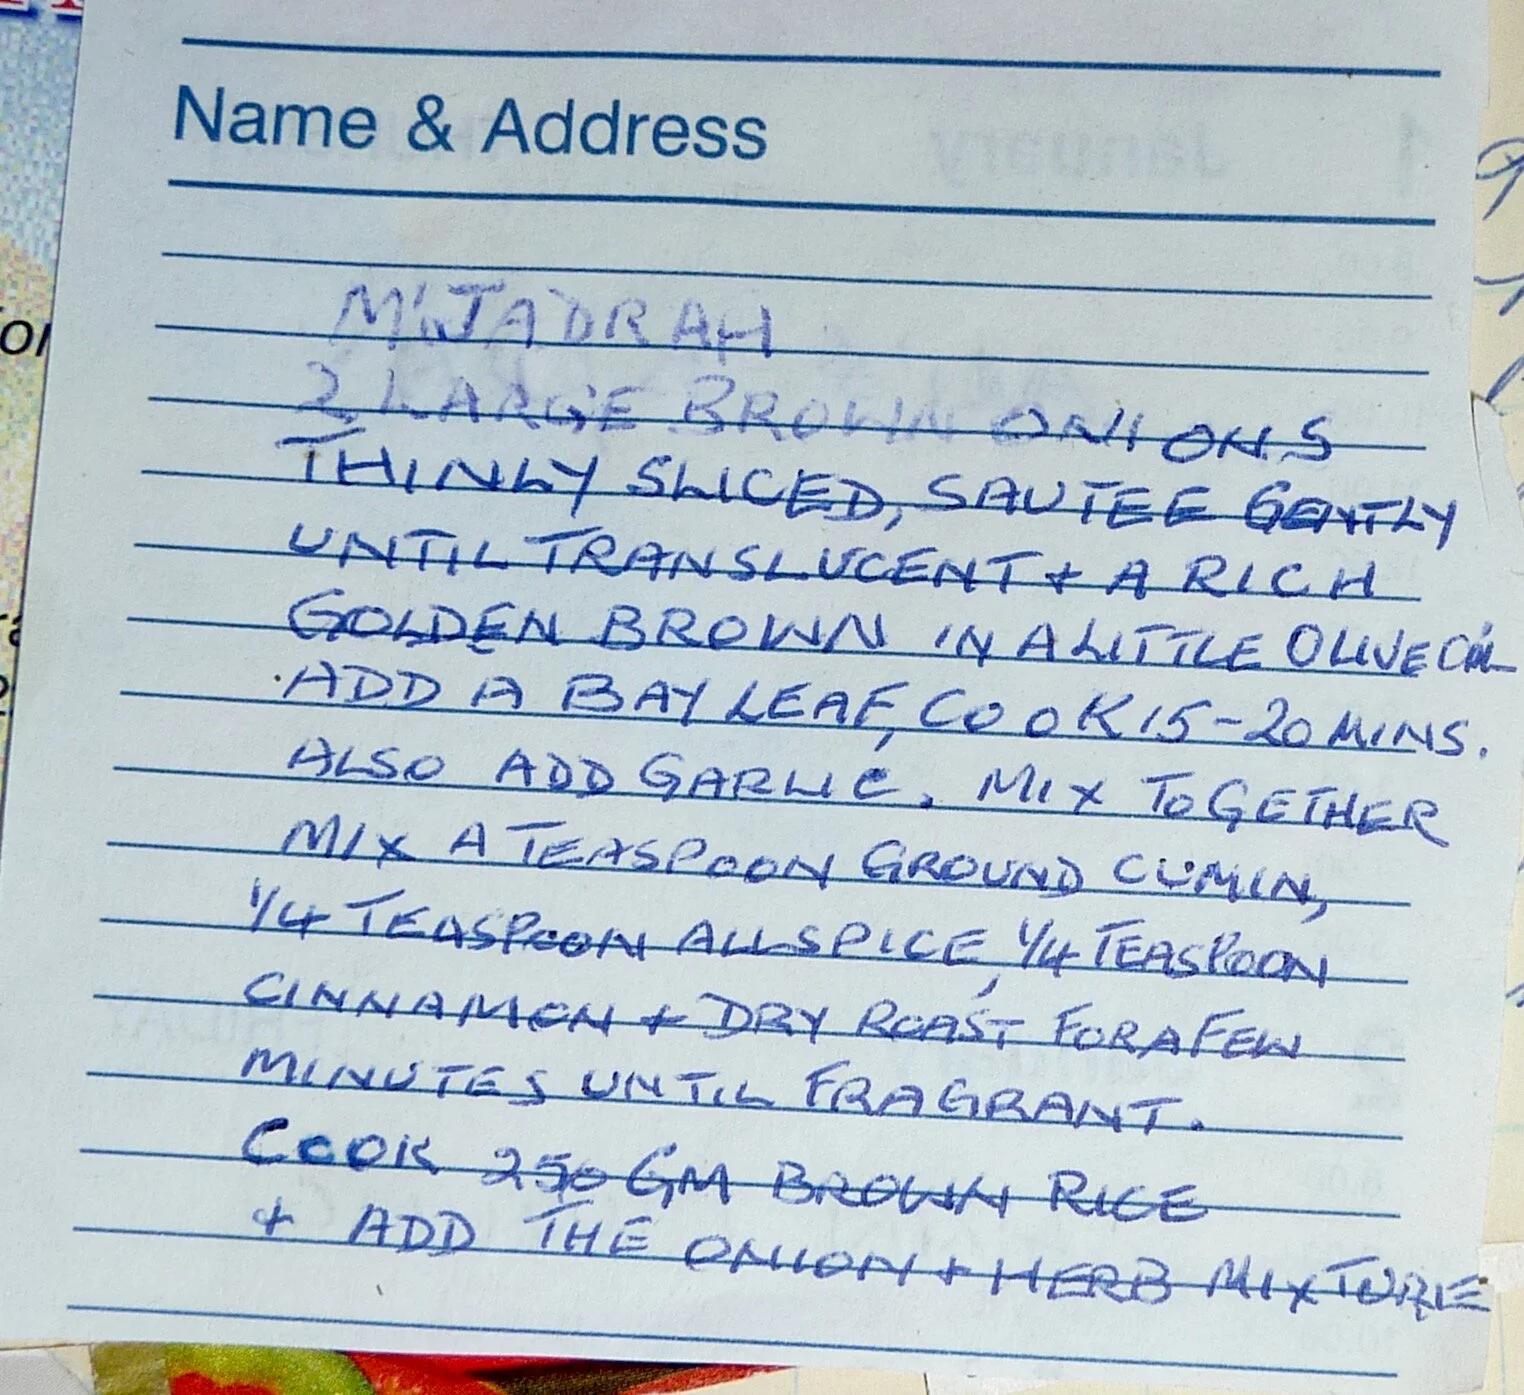 Name & Address
M'JADRAH
2 LARGE BROWN ONIONS
THINLY SLICED, SAUTEE GENTLY
UNTIL TRANSLUCENT + A RICH
GOLDEN BROWN IN A LITTLE OLIVE OIL
ADD A BAY LEAF, COOK 15-20 MINS.
ALSO ADD GARLIC. MIX TOGETHER
MIX A TEASPOON GROUND CUMIN,
1/4 TEASPOON ALLSPICE, 1/4 TEASPOON
CINNAMON + DRY ROAST FOR A FEW
MINUTES UNTIL FRAGRANT.
COOK 250 GM BROWN RICE
+ ADD THE ONION + HERB MIXTURE